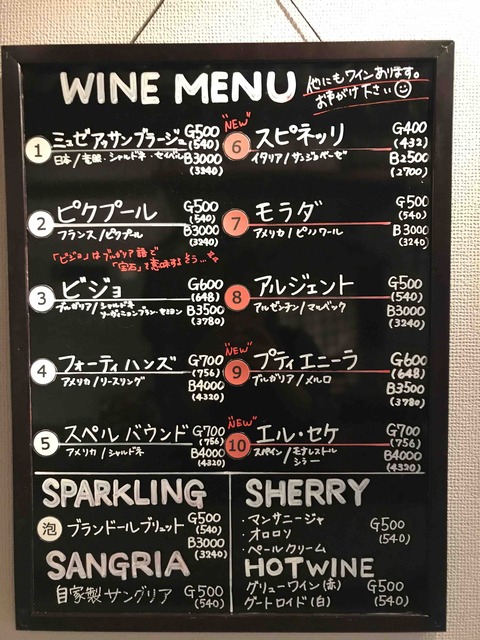 WINE MENU
他にもワインあります。
お声がけ下さい
1 ミュゼドゥサンブラージュ G500
(540)
日本/竜眼・シャルドネ・セイベル B3000
(3240)
2 ピクプール G500
(540)
フランス/ピクプール B3000
(3240)
「ビジョ」はブルガリア語で
「宝石」を意味するそう…
3 ビジョ G600
(648)
ブルガリア/シャルドネ B3500
ソーヴィニョンブラン・ (3780)
4 フォーティハンズ G700
(756)
アメリカ/リースリング B4000
(4320)
5 スペルバウンド G700
(756)
アメリカ/シャルドネ B4000
(4320)
"NEW"
6 スピネッリ G400
(432)
イタリア/サンジョベーゼ B2500
(2700)
7 モラダ G500
(540)
アメリカ/ピノノワール B3000
(3240)
8 アルジェント G500
(540)
アルゼンチン/マルベック B3000
(3240)
"NEW"
9 プティエニーラ G600
(648)
ブルガリア/メルロ B3500
(3780)
"NEW"
10 エル・セケ G700
(756)
スペイン/モナストレル B4000
シラー (4320)
SPARKLING
泡 ブランドールブリュット G500
(540)
B3000
(3240)
SANGRIA
自家製サングリア G500
(540)
SHERRY
・マンサニージャ
・オロロソ G500
・ペールクリーム (540)
HOTWINE
グリューワイン(赤) G500
グートロイド(白) (540)